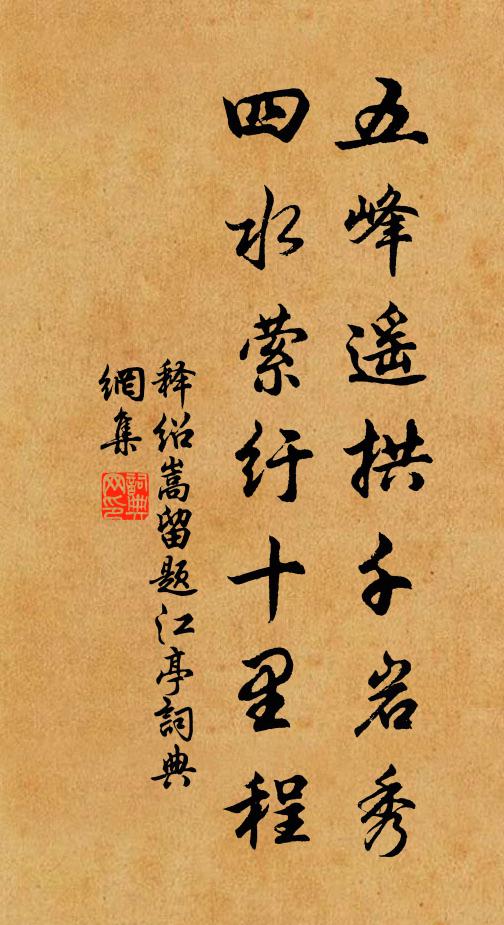 五峰遥拱千岩秀
四水萦纡十里程
释绍嵩留题江亭詞典
網集
詞典
网印